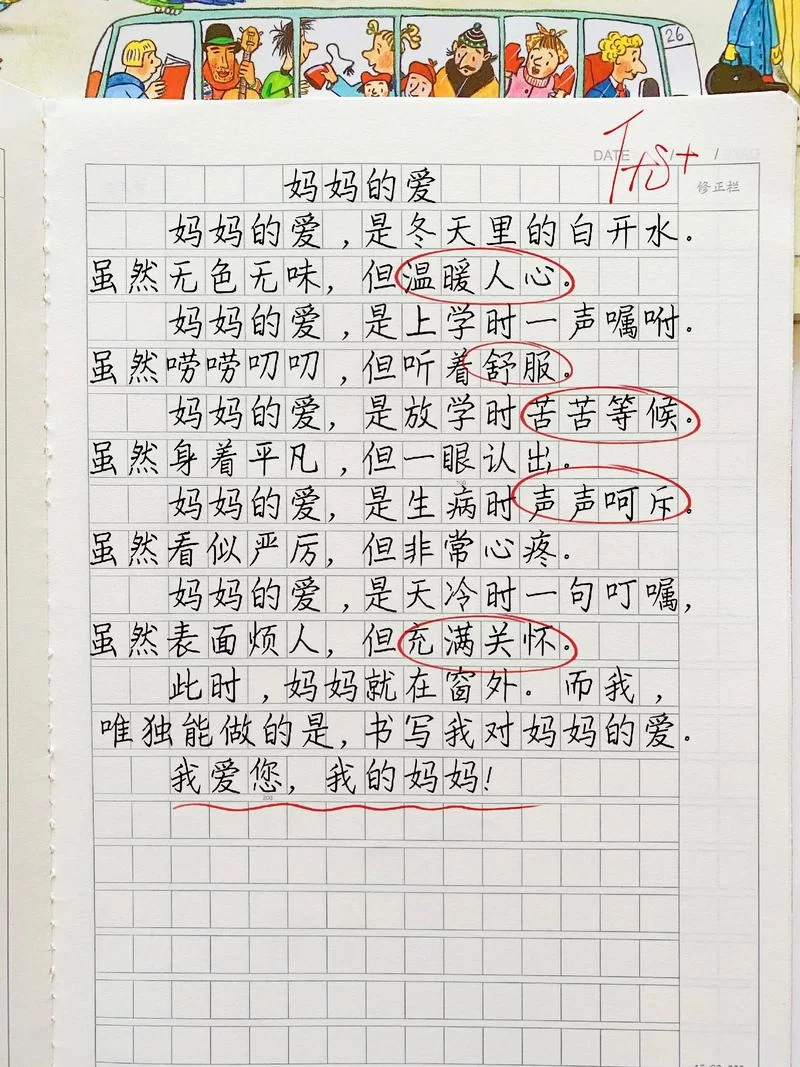 26
DATE / /
修正栏
妈妈的爱
妈妈的爱,是冬天里的白开水.
虽然无色无味,但温暖人心.
妈妈的爱,是上学时一声嘱咐.
虽然唠唠叨叨,但听着舒服.
妈妈的爱,是放学时苦苦等候.
虽然身着平凡,但一眼认出.
妈妈的爱,是生病时声声呵斥.
虽然看似严厉,但非常心疼.
妈妈的爱,是天冷时一句叮嘱,
虽然表面烦人,但充满关怀.
此时,妈妈就在窗外.而我,
唯独能做的是,书写我对妈妈的爱.
我爱您,我的妈妈!
200